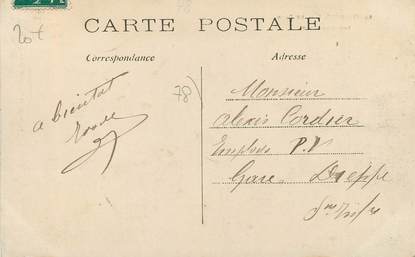 20€
CARTE POSTALE
Correspondance
Adresse
a bientot
78)
Monsieur
Alexis Cordier
Employé P.V
Gare Dieppe
Sne Infre